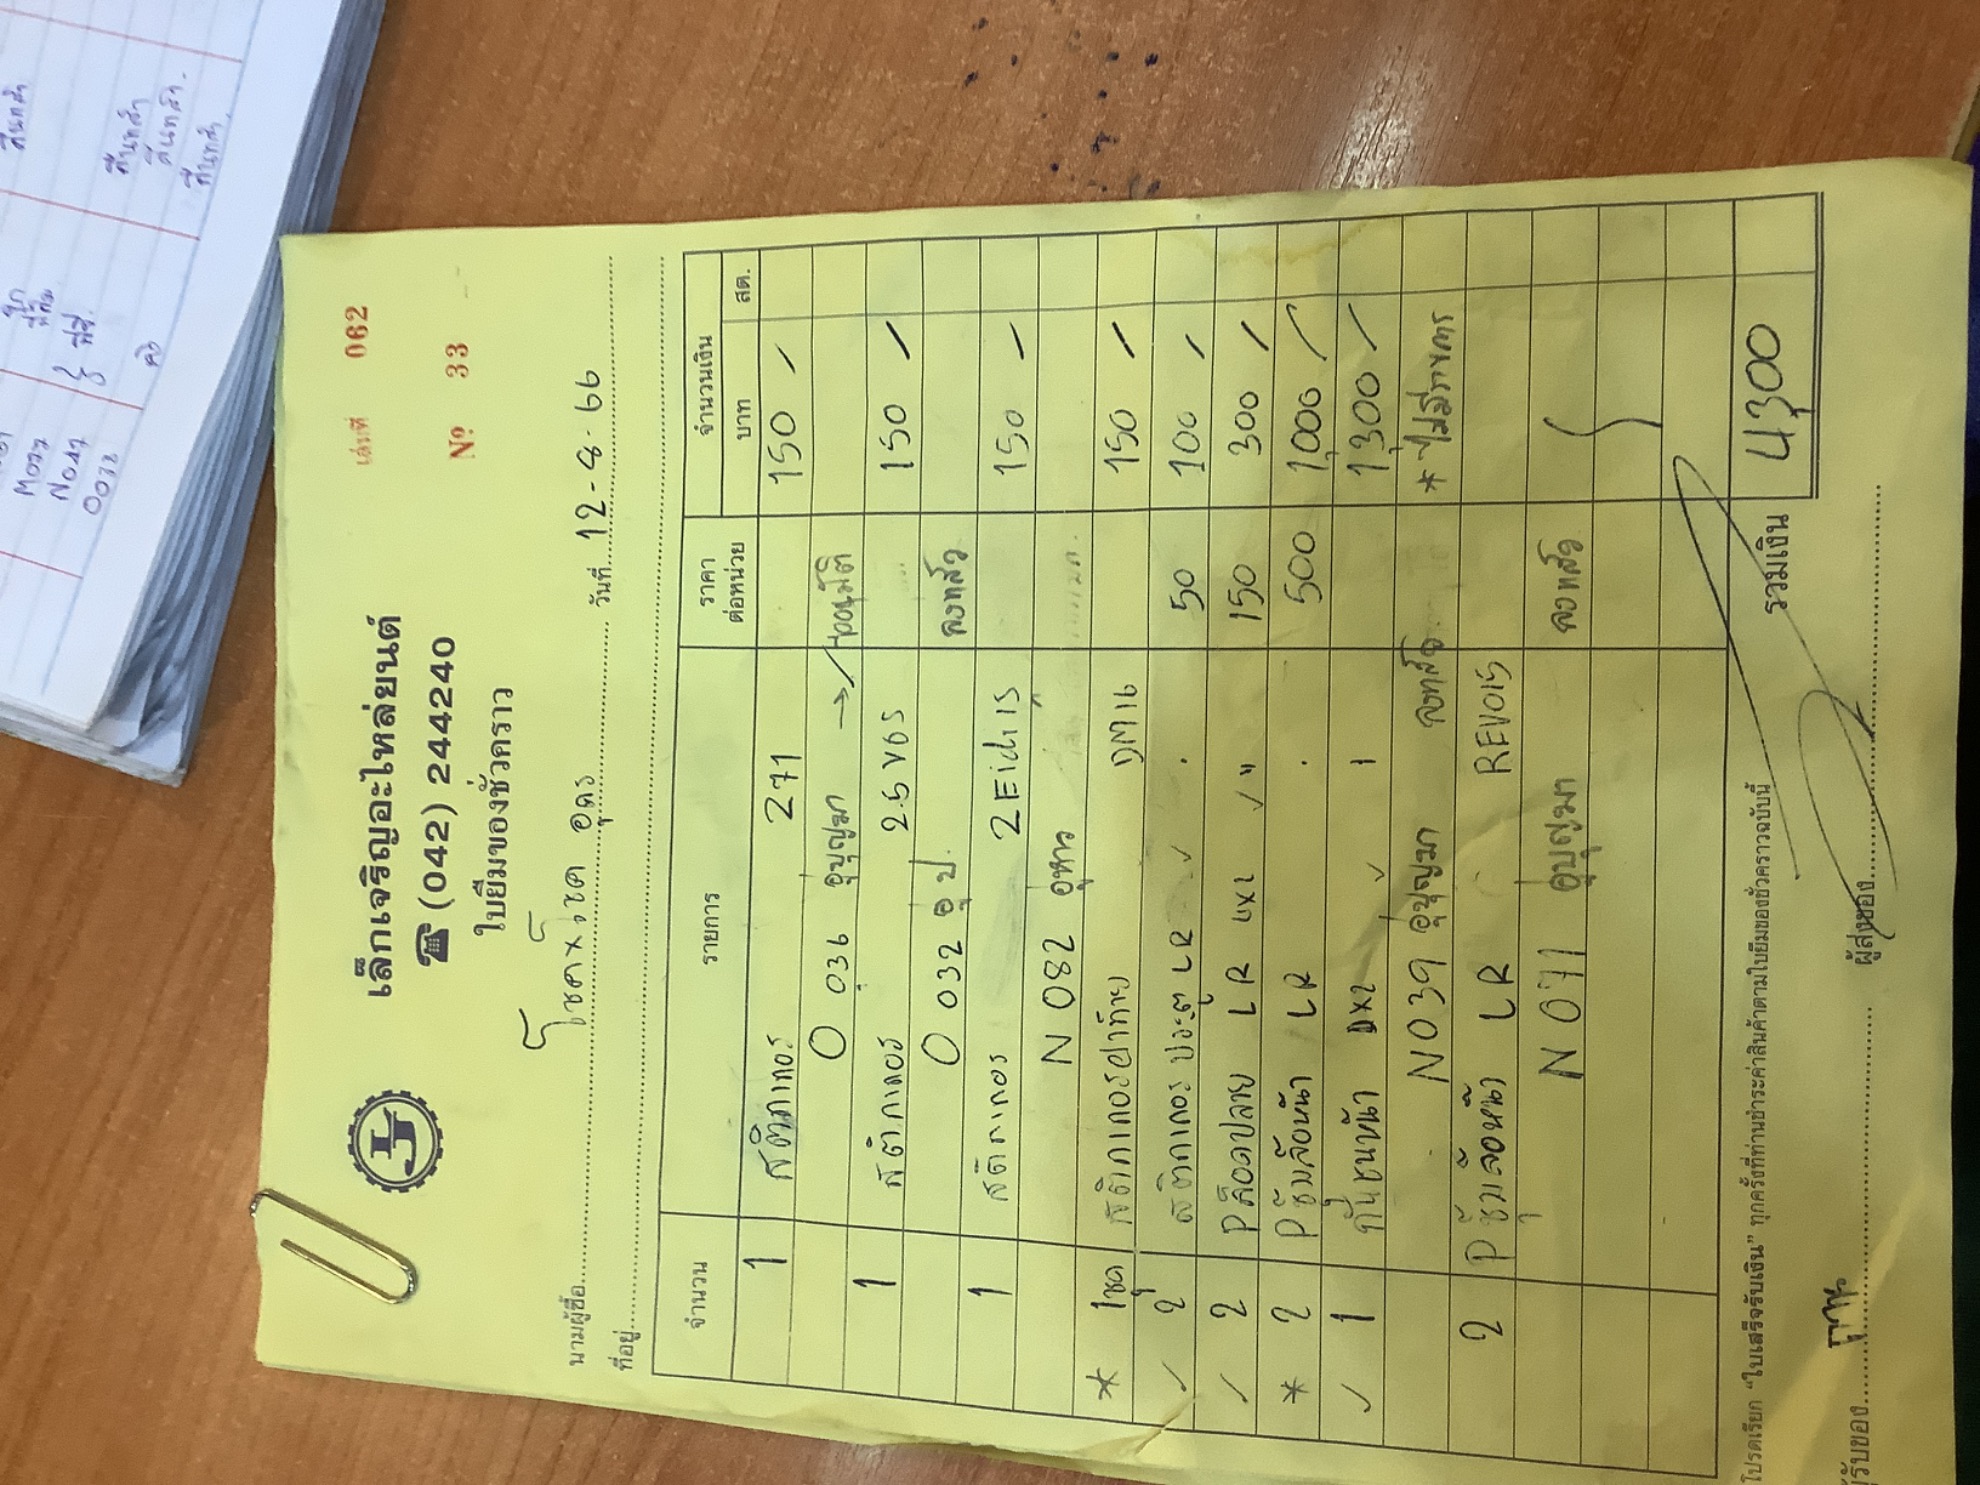 เล่มที่ 062
เล็กเจริญอะไหล่ยนต์
☎ (042) 244240
№ 33
ใบยืมของชั่วคราว
นามผู้ซื้อ โชค x โชค อุดร วันที่ 12-8-66
ที่อยู่
จำนวน รายการ ราคาต่อหน่วย จำนวนเงิน
บาท สต.
1 สติกเกอร์ 271 150 /
0 036 อู่บุญมา → /
1 สติกเกอร์ 2.5 VGS 150 /
0 032 อู่ ป. ลงแล้ว
1 สติกเกอร์ 150 /
N 082
* 1ชุด สติกเกอร์ฝาท้าย DM16 150 /
✓ 2 สติกเกอร์ ประตู LR ✓ . 50 100 /
✓ 2 P ล็อดปลาย LR 4x2 ✓ " 150 300 /
* 2 P ซุ้มล้อหน้า LR . 500 1,000 /
✓ 1 กันชนหน้า DX2 ✓ 1 1,300 /
N039 อู่บุญมา ลงแล้ว * ไม่มีราคา
2 P ซุ้มล้อหน้า LR REVO15
N 071 อู่บุญมา ลงแล้ว
รวมเงิน 4,300
โปรดเรียก "ใบเสร็จรับเงิน" ทุกครั้งที่ท่านชำระค่าสินค้าตามใบยืมของชั่วคราวฉบับนี้
ผู้รับของ ผู้ส่งของ
N047
0072